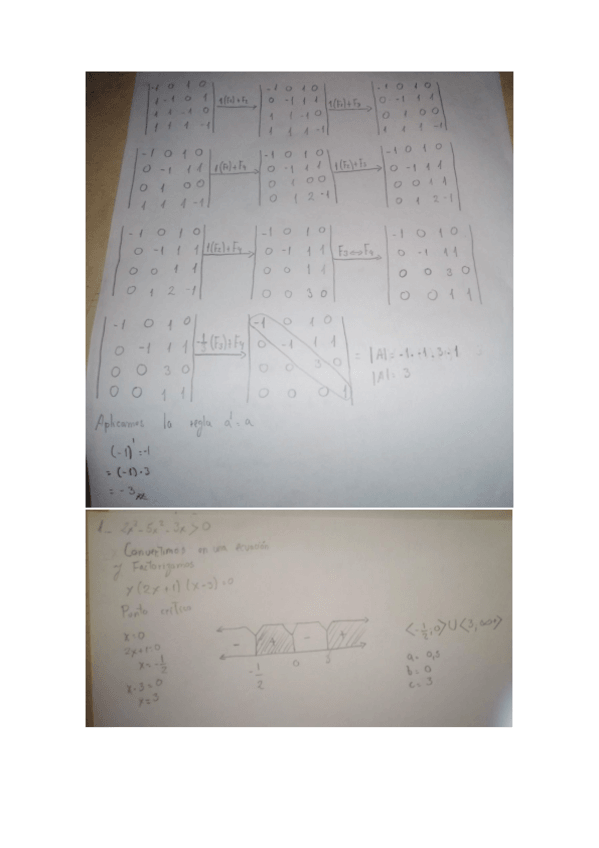 -1 0 1 0
1 -1 0 1
1 1 -1 0
1 1 1 -1
1(F1)+F2
-1 0 1 0
0 -1 1 1
1 1 -1 0
1 1 1 -1
1(F1)+F3
-1 0 1 0
0 -1 1 1
0 1 0 0
1 1 1 -1
-1 0 1 0
0 -1 1 1
0 1 0 0
1 1 1 -1
1(F1)+F4
-1 0 1 0
0 -1 1 1
0 1 0 0
0 1 2 -1
1(F2)+F3
-1 0 1 0
0 -1 1 1
0 0 1 1
0 1 2 -1
-1 0 1 0
0 -1 1 1
0 0 1 1
0 1 2 -1
1(F2)+F4
-1 0 1 0
0 -1 1 1
0 0 1 1
0 0 3 0
F3↔F4
-1 0 1 0
0 -1 1 1
0 0 3 0
0 0 1 1
-1 0 1 0
0 -1 1 1
0 0 3 0
0 0 1 1
-1/3(F3)+F4
-1 0 1 0
0 -1 1 1
0 0 3 0
0 0 0 1
= |A|= -1.-1.3.1
|A|= 3
Aplicamos la regla a¹=a
(-1)¹=-1
= (-1)·3
= -3
1- 2x³-5x²-3x>0
Convertimos en una ecuación
y Factorizamos
x(2x+1)(x-3)=0
Punto critico
x=0
2x+1=0
x=-1/2
x-3=0
x=3
- + - +
-1/2 0 3
<-1/2,0>U<3,+∞>
a= 0,5
b= 0
c= 3